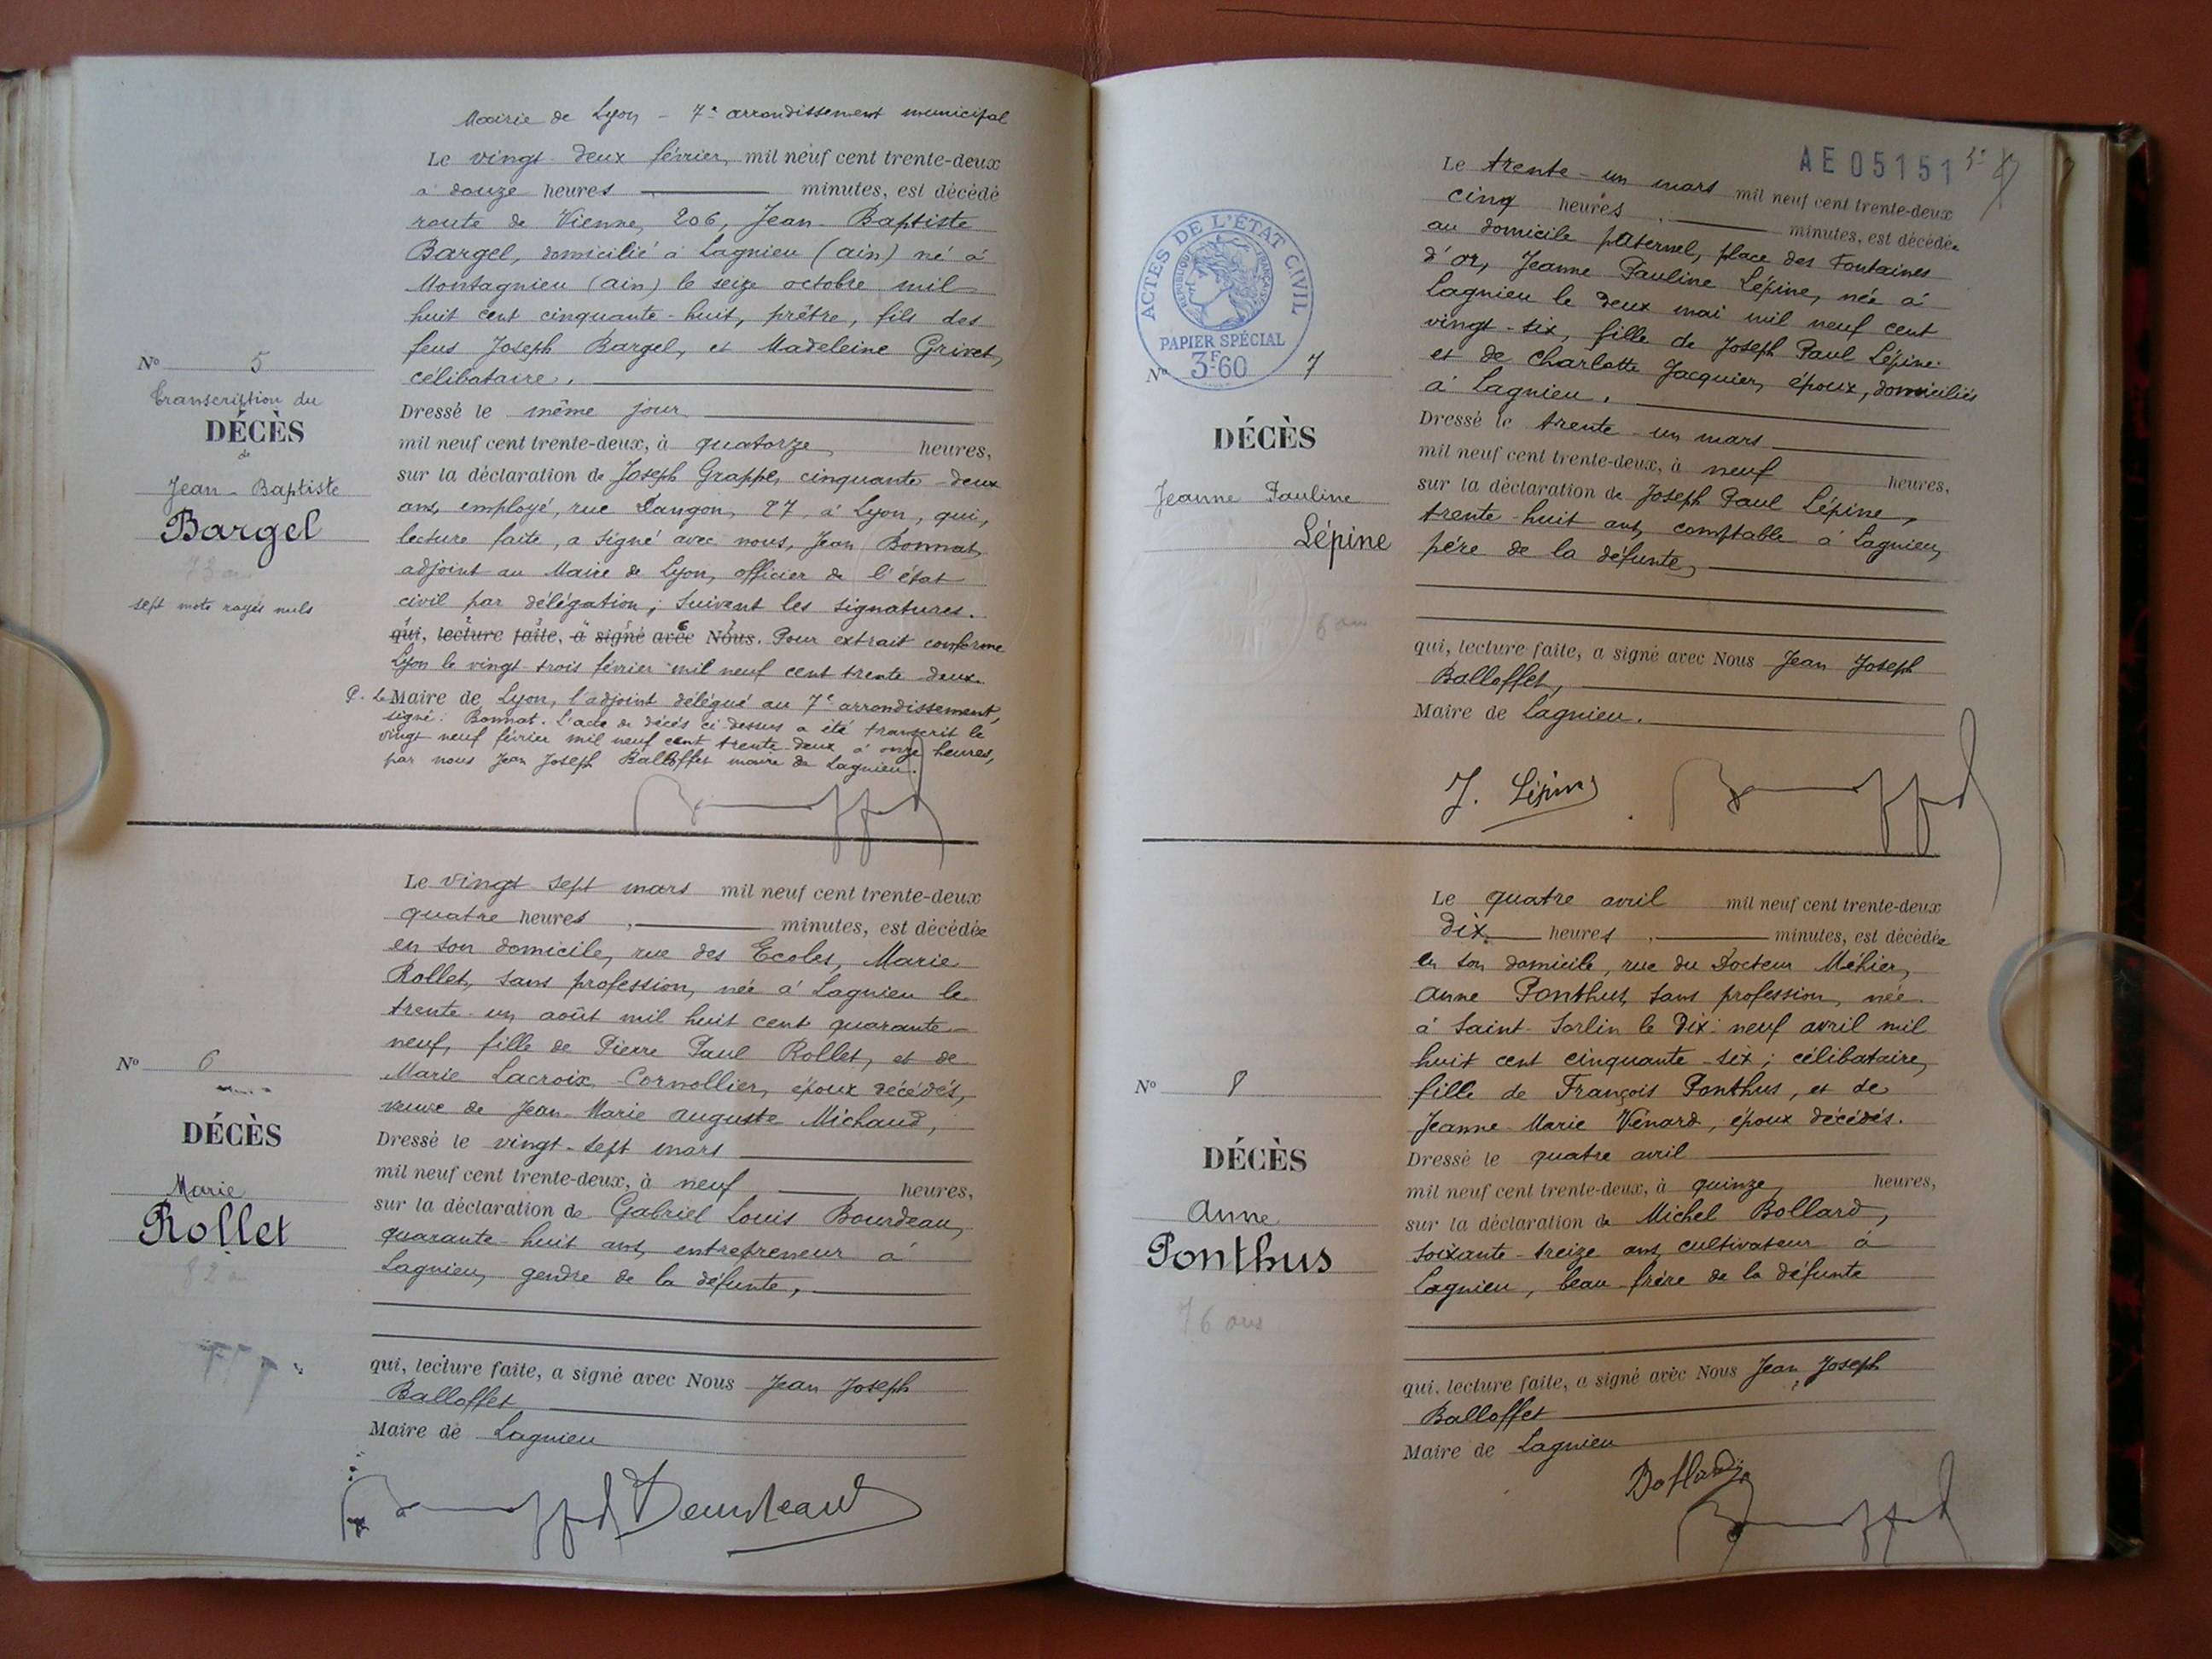 Mairie de Lyon - 7e arrondissement municipal
Le vingt-deux février, mil neuf cent trente-deux
à douze heures minutes, est décédé
route de Vienne, 206, Jean-Baptiste
Bargel, domicilié à Lagnieu (ain) né à
Montagnieu (ain) le seize octobre mil
huit cent cinquante-huit, prêtre, fils des
feus Joseph Bargel, et Madeleine Grivet,
célibataire.
Dressé le même jour
mil neuf cent trente-deux, à quatorze heures,
sur la déclaration de Joseph Grappe, cinquante-deux
ans, employé, rue 27 à Lyon, qui,
lecture faite, a signé avec nous, Jean Bonnat,
adjoint au Maire de Lyon, officier de l'état
civil par délégation; suivent les signatures.
qui, lecture faite, a signé avec Nous. Pour extrait conforme
Lyon le vingt-trois février mil neuf cent trente-deux.
P. le Maire de Lyon, l'adjoint délégué au 7e arrondissement,
signé: Bonnat. L'acte de décès ci-dessus a été transcrit le
vingt neuf février mil neuf cent trente-deux à onze heures,
par nous Jean Joseph Balloffet maire de Lagnieu.
No 5
Transcription du
DÉCÈS
de
Jean-Baptiste
Bargel
73 ans
sept mots rayés nuls
Le vingt-sept mars mil neuf cent trente-deux
quatre heures minutes, est décédée
en son domicile, rue des Ecoles, Marie
Rollet, sans profession, née à Lagnieu le
trente-un août mil huit cent quarante-
neuf, fille de Pierre Paul Rollet, et de
Marie Lacroix-Cornollier, époux décédés,
veuve de Jean-Marie auguste Michaud,
Dressé le vingt-sept mars
mil neuf cent trente-deux, à neuf heures,
sur la déclaration de Gabriel Louis Bourdeau,
quarante-huit ans, entrepreneur à
Lagnieu, gendre de la défunte,
qui, lecture faite, a signé avec Nous Jean Joseph
Balloffet
Maire de Lagnieu
No 6
DÉCÈS
Marie
Rollet
82 an
AE05151
Le trente-un mars mil neuf cent trente-deux
cinq heures minutes, est décédée
au domicile paternel, place des Fontaines
d'or, Jeanne Pauline Lépine, née à
Lagnieu le deux mai mil neuf cent
vingt-six, fille de Joseph Paul Lépine
et de Charlotte Jacquier, époux, domiciliés
à Lagnieu.
Dressé le trente-un mars
mil neuf cent trente-deux, à neuf heures,
sur la déclaration de Joseph Paul Lépine,
trente-huit ans, comptable à Lagnieu,
père de la défunte,
qui, lecture faite, a signé avec Nous Jean Joseph
Balloffet,
Maire de Lagnieu.
J. Lépine
ACTES DE L'ÉTAT CIVIL
RÉPUBLIQUE FRANÇAISE
PAPIER SPÉCIAL
3F60
No 7
DÉCÈS
Jeanne Pauline
Lépine
6 ans
Le quatre avril mil neuf cent trente-deux
dix heures minutes, est décédée
en son domicile, rue du Docteur Méhier,
Anne Ponthus, sans profession, née
à Saint-Sorlin le dix-neuf avril mil
huit cent cinquante-six; célibataire,
fille de François Ponthus, et de
Jeanne-Marie Vénard, époux décédés.
Dressé le quatre avril
mil neuf cent trente-deux, à quinze heures,
sur la déclaration de Michel Bollard,
soixante-treize ans, cultivateur à
Lagnieu, beau-frère de la défunte
qui, lecture faite, a signé avec Nous Jean Joseph
Balloffet
Maire de Lagnieu
Bollard
No 8
DÉCÈS
Anne
Ponthus
76 ans